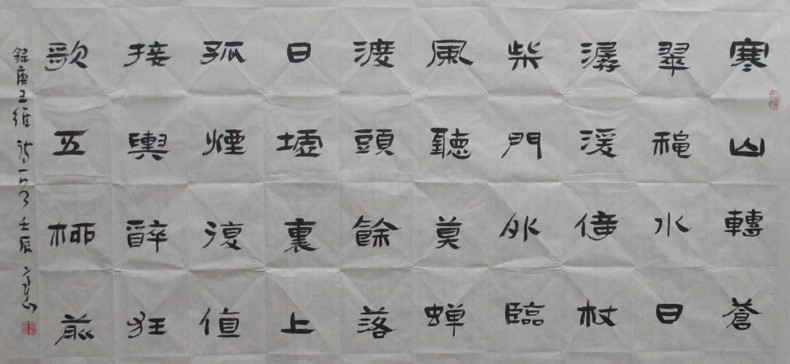 寒山轉蒼
翠穐水日
潺湲倚杖
柴門外臨
風聽莫蝉
渡頭餘落
日墟裏上
孤煙復值
接輿醉狂
歌五柳前
錄唐王維詩一首壬辰